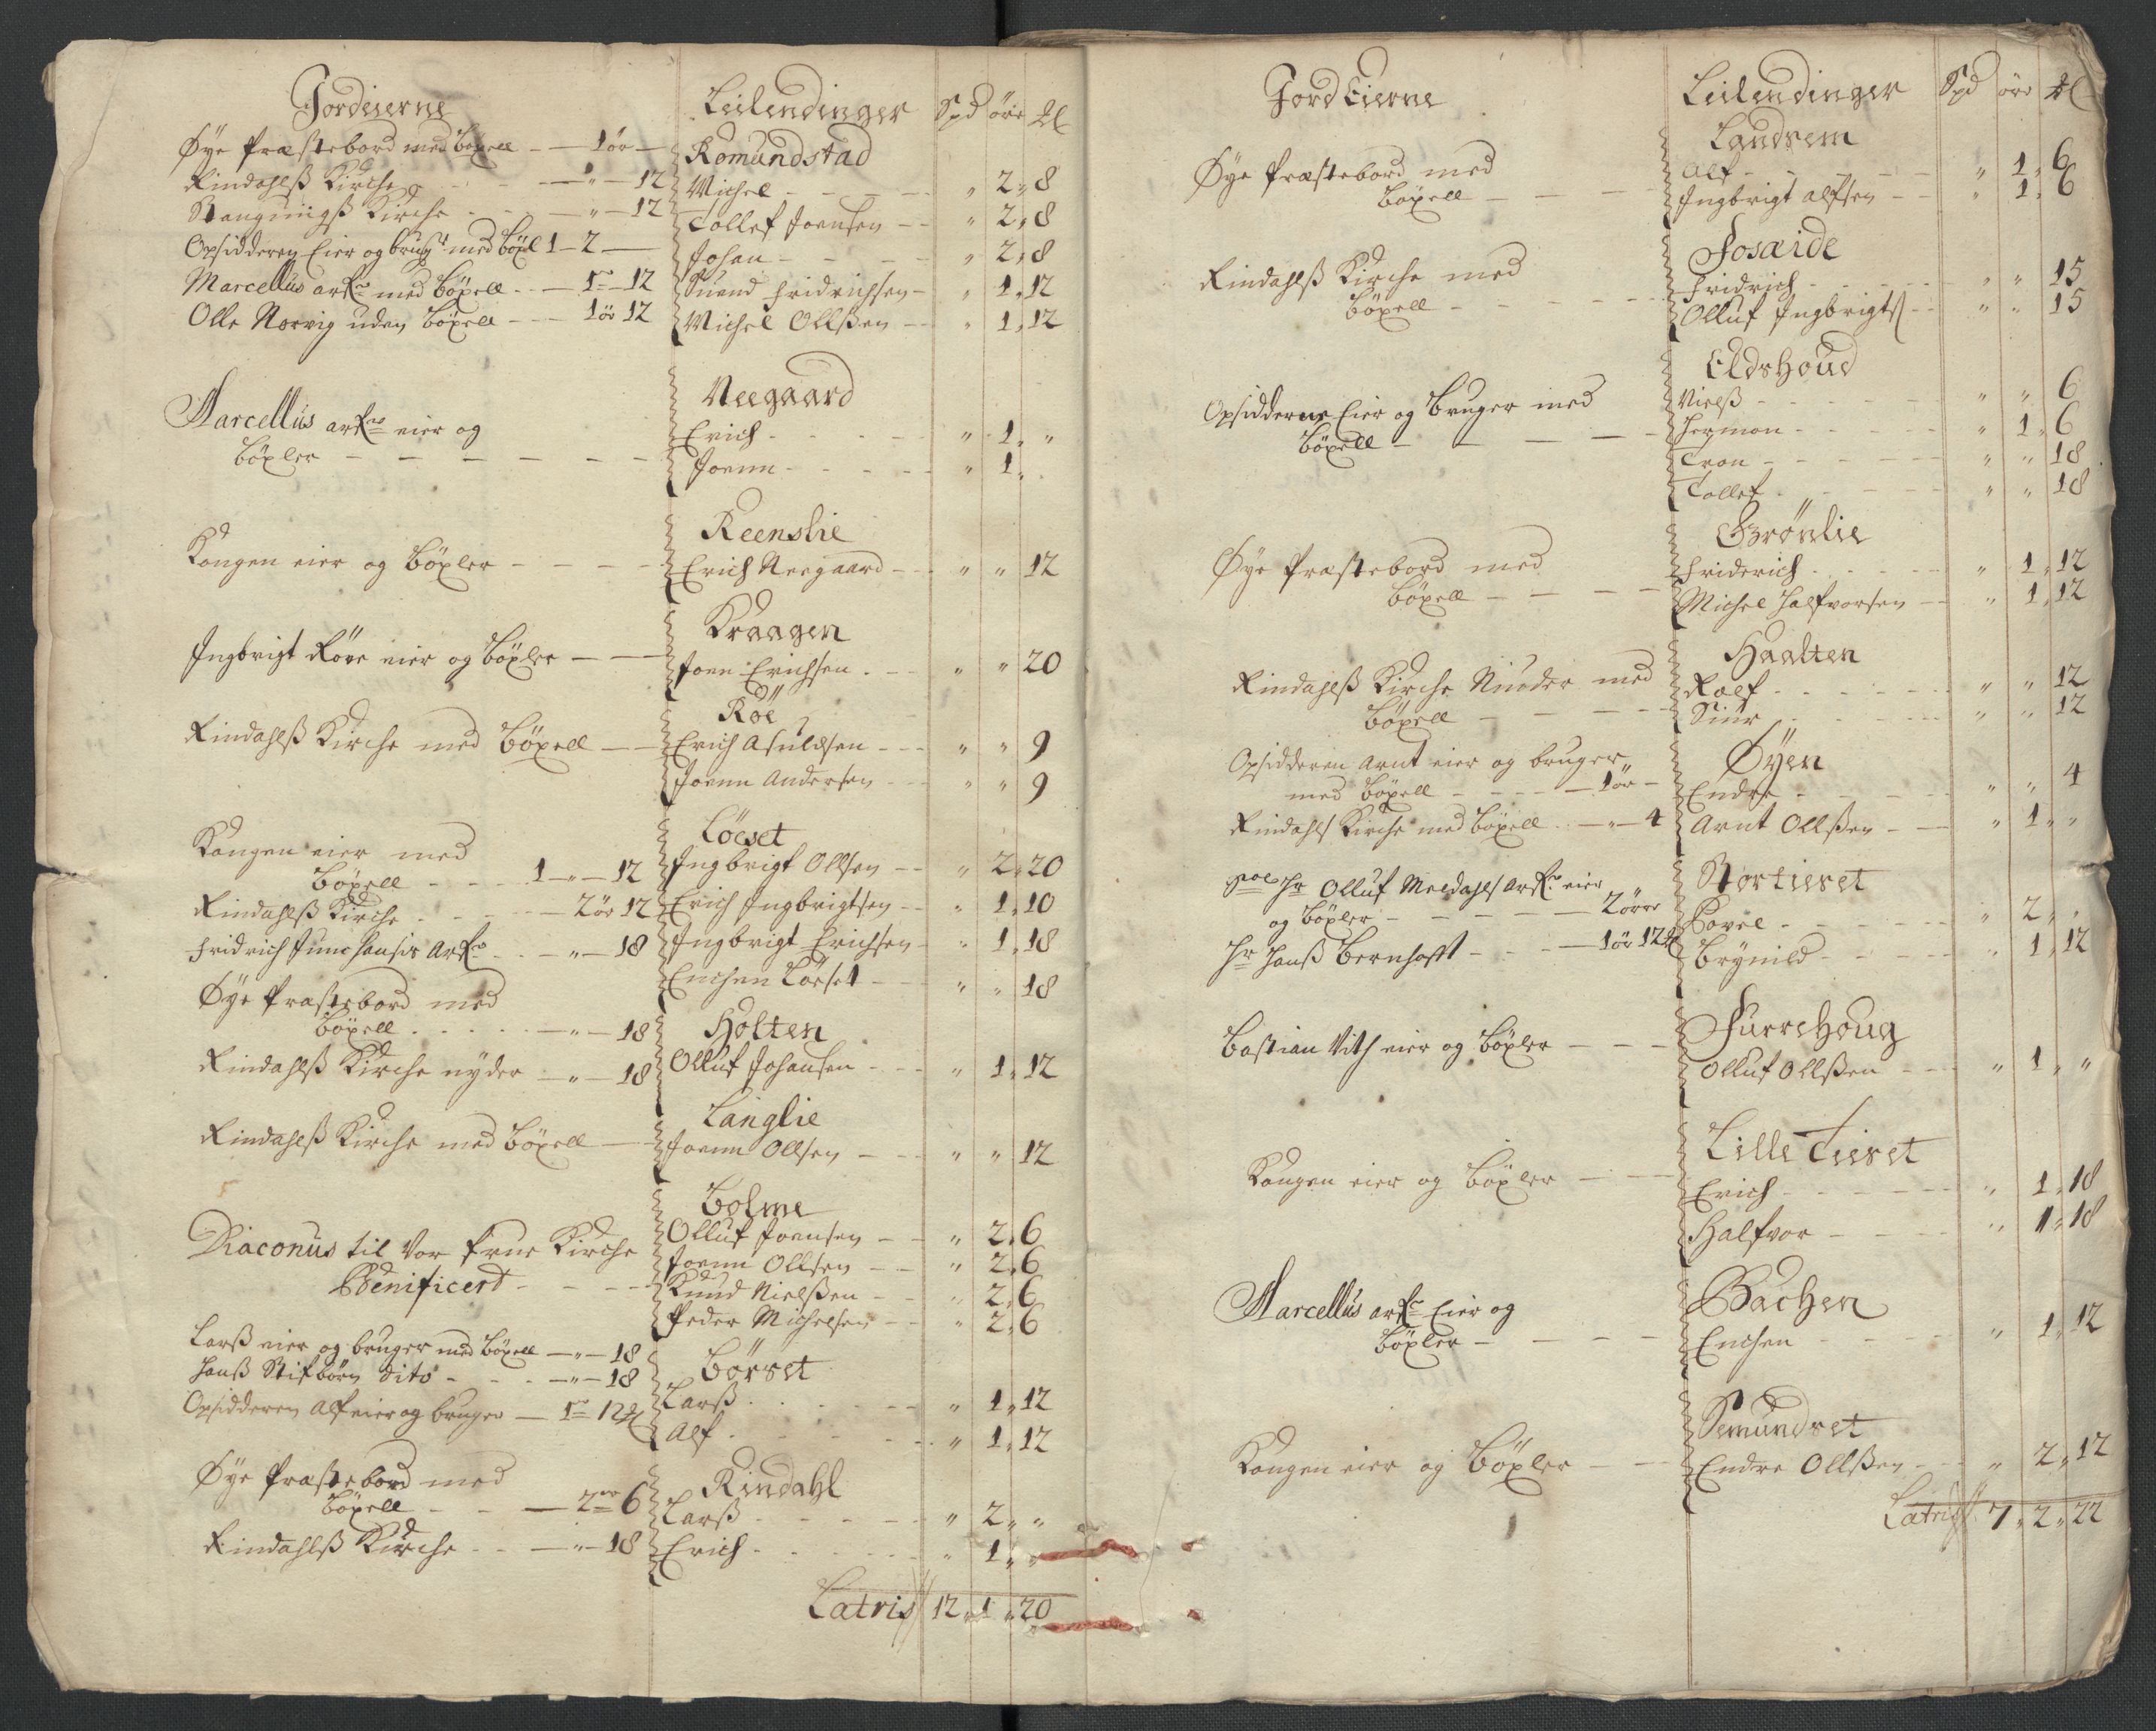 Jordeierne
Øÿe Præstebord med böxell — 1ör —
Rindahlß Kirche — „ — 12
Stangvigß Kirche — „ — 12
Opsidderen Eier og brugt med böxl 1 — 2 —
Marcellus arfr med böxell — 1 — 12
Olle Norvig uden böxell — 1ör 12
Marcellus arfr eier og
böxler
Kongen eier og böxler
Ingbrigt Röee eier og böxler
Rindahlß Kirche med böxell
Kongen eier med
böxell 1 — „ — 12
Rindahlß Kirche — 2ör 12
Fridrich Junchansis Arfr — „ — 18
Øÿe Præstebord med
böxell — „ — 18
Rindahlß Kirche nyder — „ — 18
Rindahlß Kirche med böxell
Diaconus til Vor frue Kirche
Benificert
Larß eier og bruger med böxell — „ — 18
Hanß Stifbörn dito — „ — 18
Opsidderen Alf eier og bruger — 1 — 12
Øÿe Præstebord med
böxell — 2ör 6
Rindahlß Kirche — „ — 18
Leilendinger Spd öre Ml
Romundstad
Michel „ 2 „ 8
Tollef Joensen „ 2 „ 8
Johan „ 2 „ 8
Suend Fridrichsen „ 1 „ 12
Michel Ollßen „ 1 „ 12
Neegaard
Erich „ 1 „ „
Joenn „ 1 „
Reenslie
Erich Neegaard „ „ 12
Kraagen
Joen Erichsen „ „ 20
Röe
Erich Asuldsen „ „ 9
Joenn Andersen „ „ 9
Löeset
Ingbrigt Ollsen „ 2 „ 20
Erich Ingbrigtsen „ 1 „ 10
Ingbrigt Erichsen „ 1 „ 18
Enchen Löeset „ „ 18
Holten
Olluf Johansen „ 1 „ 12
Langlie
Joenn Ollsen „ „ 12
Bolme
Olluf Joensen „ 2 „ 6
Joenn Ollsen „ 2 „ 6
Knud Nielßen „ 2 „ 6
Peder Michelsen „ 2 „ 6
Börset
Larß „ 1 „ 12
Alf „ 1 „ 12
Rindahl
Larß „ 2 „ „
Erich „ 1 „ „
Latris 12 „ 1 „ 20
Jord Eierne
Øÿe Præstebord med
böxell
Rindahlß Kirche med
böxell
Opsidderne Eier og bruger med
böxell
Øÿe Præstebord med
böxell
Rindahlß Kirche Niuder med
böxell
Opsidderen Arnt eier og bruger
med böxell — 1ör —
Rindahls Kirche med böxell — „ — 4
Hr Olluf Meldahls Arfr eier
og böxler — 2öre
Hr Hanß Bernhoft — 1ör 12
Bastian Vith eier og böxler
Kongen eier og böxler
Marcellus arfr Eier og
böxler
Kongen eier og böxler
Leilendinger Spd öre Ml
Landsem
Alf „ 1 „ 6
Ingbrigt Alfsen „ 1 „ 6
Fosæide
Fridrich „ „ 15
Olluf Ingbrigts „ „ 15
Eldshoud
Nielß „ „ 6
Hermon „ 1 „ 6
Tron „ „ 18
Tollef „ „ 18
Grönlie
Friderich „ 1 „ 12
Michel Halfvorsen „ 1 „ 12
Haalten
Rolf „ „ 12
Siur „ „ 12
Øÿen
Endre „ „ 4
Arnt Ollßen „ 1 „ „
Stortieset
Povel „ 2 „ „
Brynild „ 1 „ 12
Furrehoug
Olluf Ollßen „ 1 „ „
Lille Tieset
Erich „ 1 „ 18
Halfvor „ 1 „ 18
Bachen
Enchen „ 1 „ 12
Semundset
Endre Ollßen „ 2 „ 12
Latris 7 „ 2 „ 22